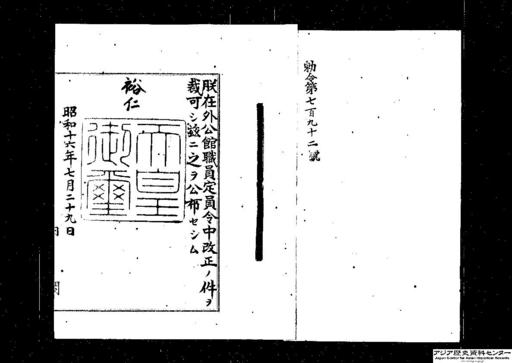 勅令第七百九十二號
朕在外公館職員定員令中改正ノ件ヲ
裁可シ茲ニ之ヲ公布セシム
裕仁
天皇御璽
昭和十六年七月二十九日
アジア歴史資料センター
Japan Center for Asian Historical Records